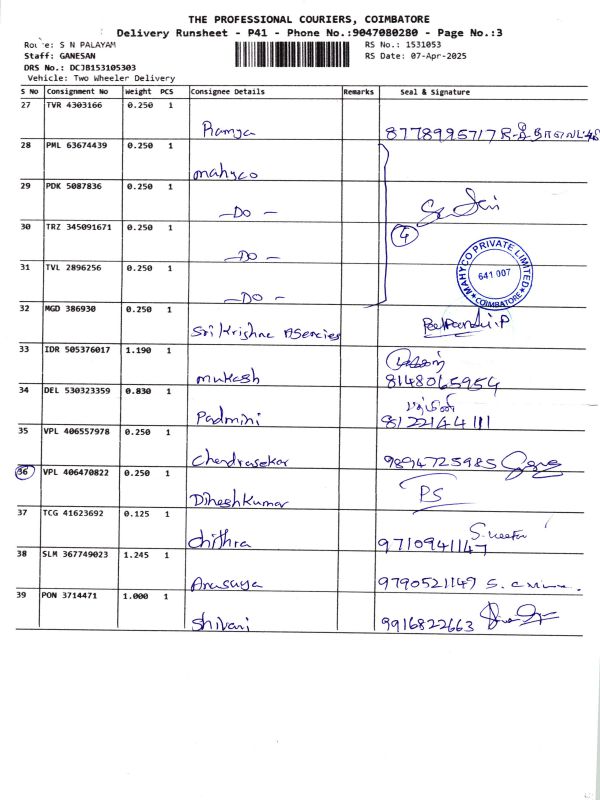 THE PROFESSIONAL COURIERS, COIMBATORE
Delivery Runsheet - P41 - Phone No.:9047080280 - Page No.:3
Route: S N PALAYAM
RS No.: 1531053
Staff: GANESAN
RS Date: 07-Apr-2025
DRS No.: DCJB153105303
Vehicle: Two Wheeler Delivery
S No Consignment No Weight PCS Consignee Details Remarks Seal & Signature
27 TVR 4303166 0.250 1
Ramya 8778995717
28 PML 63674439 0.250 1
mahyco
29 PDK 5087836 0.250 1
-DO-
30 TRZ 345091671 0.250 1 4
-DO-
MAHYCO PRIVATE LIMITED
641 007
COIMBATORE
31 TVL 2896256 0.250 1
-DO-
32 MGD 386930 0.250 1
Sri Krishna Agencies
33 IDR 505376017 1.190 1
mukash 8148065954
34 DEL 530323359 0.830 1 பத்மினி
Padmini 8122144111
35 VPL 406557978 0.250 1
Chendrasekar 9894725985
36 VPL 406470822 0.250 1
Dinesh Kumar PS
37 TCG 41623692 0.125 1
Chithra 9710941147
38 SLM 367749023 1.245 1
Anasuya 9790521149
39 PON 3714471 1.000 1
Shivani 9916822663